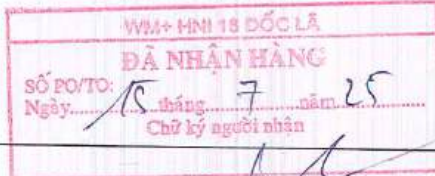 WM+ HNI 18 DỐC LÃ
ĐÃ NHẬN HÀNG
SỐ PO/TO:
Ngày 15 tháng 7 năm 25
Chữ ký người nhận